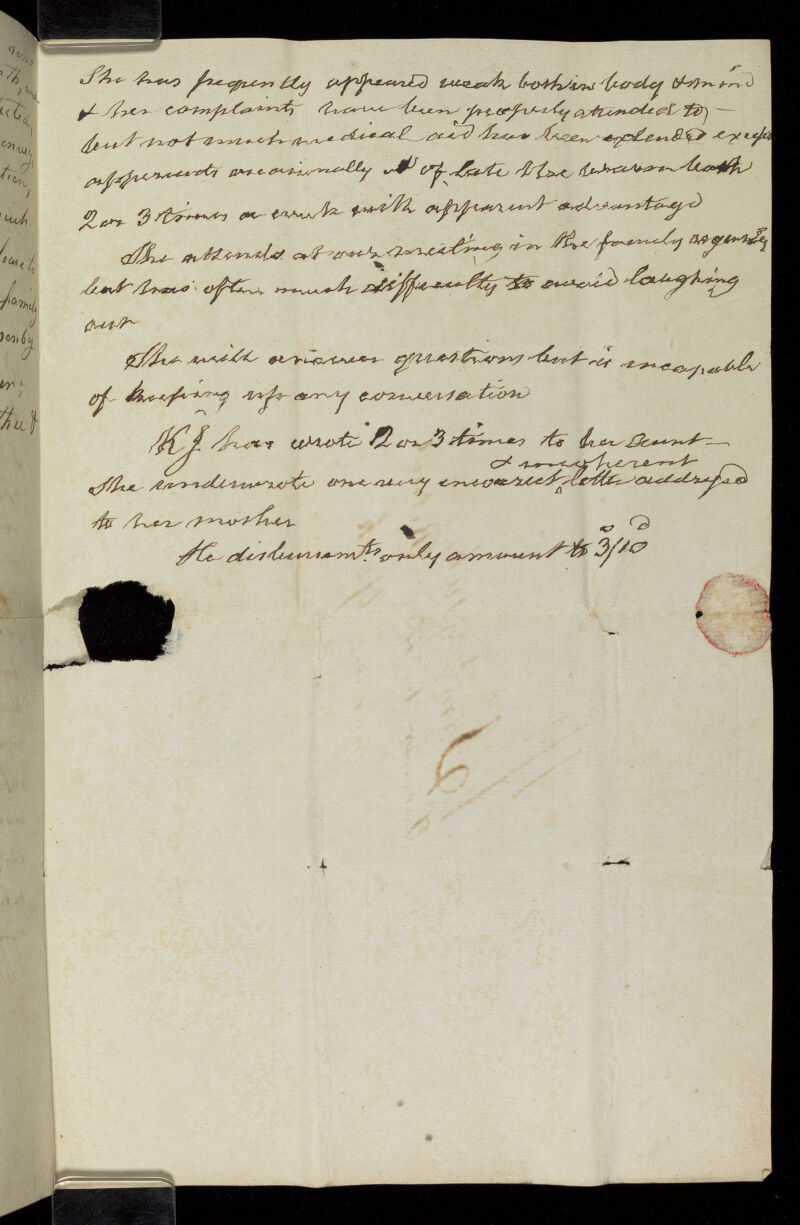 She has frequently appeared weak both in body & mind
& her complaints have been properly attended to –
but not much medical aid has been extended except
apperients occasionally & of late the warm bath
2 or 3 times a week with apparent advantage
She attends at our meeting in the family regularly
but has often much difficulty to avoid laughing
out
She will answer questions but is incapable
of keeping up any conversation
KJ has wrote 2 or 3 times to her Aunt –
& incoherent
She wrote one very incorrect letter addressed
to her mother
The disbursmts. only amount to 3/10
was
tion,
such
family
thee &
6